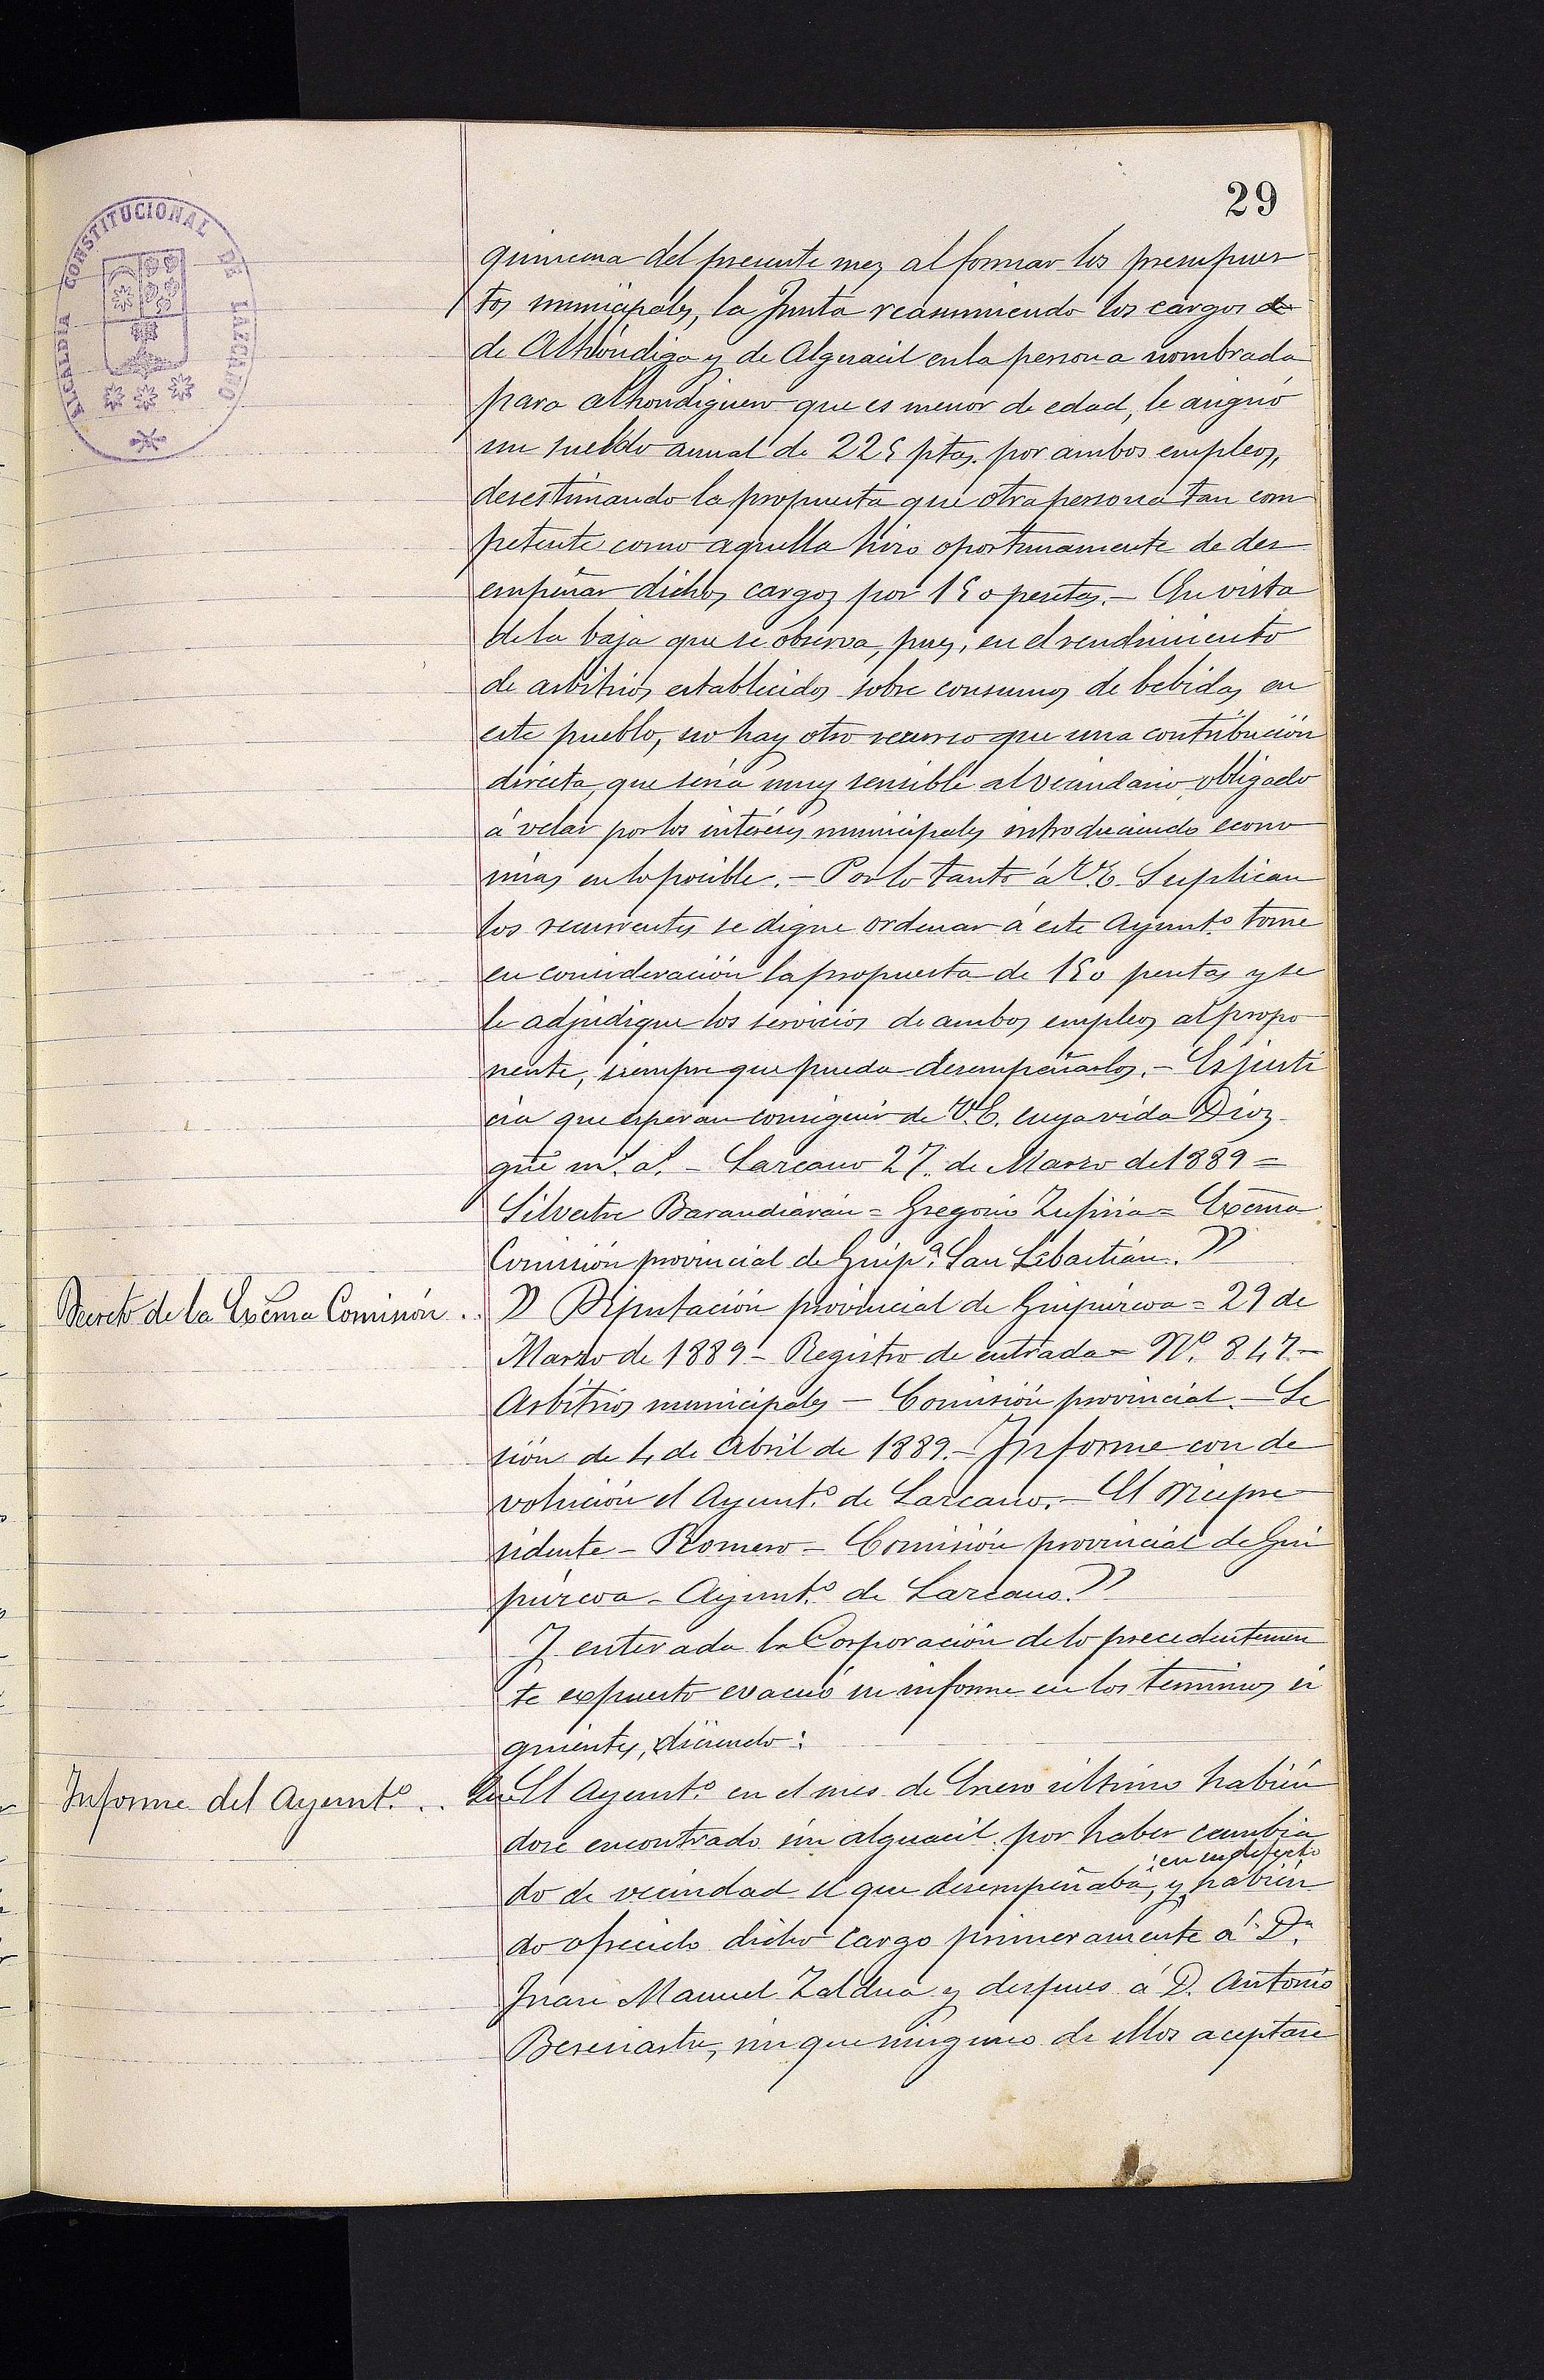 29
ALCALDIA CONSTITUCIONAL DE LAZCANO
quincena del presente mes al formar los presupues
tos municipales, la Junta reasumiendo los cargos de
de Alhóndiga y de Alguacil en la persona nombrada
para alhondiguero que es menor de edad, le asignó
un sueldo anual de 225 ptas. por ambos empleos,
desestimando la propuesta que otra persona tan com
petente como aquella hizo oportunamente de des
empeñar dichos cargos por 150 pesetas.- En vista
de la baja que se observa, pues, en el rendimiento
de arbitrios establecidos sobre consumos de bebidas en
este pueblo, no hay otro recurso que una contribución
directa, que sería muy sensible al vecindario, obligado
á velar por los intereses municipales introduciendo econo
mías en lo posible.- Por lo tanto á V.E. Suplican
los recurrentes se digne ordenar á este Ayunt.º tome
en consideración la propuesta de 150 pesetas y se
le adjudique los servicios de ambos empleos al propo
nente, siempre que pueda desempeñarlos.- Es justi
cia que esperan conseguir de V.E. cuya vida Dios
gue m.s a.s - Lazcano 27 de Marzo de 1889 =
Silvestre Barandiarán = Gregorio Zufiria = Excma
Comisión provincial de Guip.ª San Sebastián. "
Decreto de la Excma Comisión ..
" Diputación provincial de Guipúzcoa = 29 de
Marzo de 1889 - Registro de entrada = N.º 847.-
Arbitrios municipales - Comisión provincial.- Se
sión de 4 de Abril de 1889.- Informe con de
volución el Ayunt.º de Lazcano.- El Vicepre
sidente - Romero - Comisión provincial de Gui
púzcoa - Ayunt.º de Lazcano."
Y enterada la Corporación de lo precedentemen
te expuesto evacuó su informe en los terminos si
guientes, diciendo:
Informe del Ayunt.º ..
El Ayunt.º en el mes de Enero último habién
dose encontrado sin alguacil por haber cambia
en su defecto
do de vecindad el que desempeñaba, y habien
do ofrecido dicho cargo primeramente á D.n
Juan Manuel Zaldua y despues á D. Antonio
Beresiartu, sin que ninguno de ellos aceptase